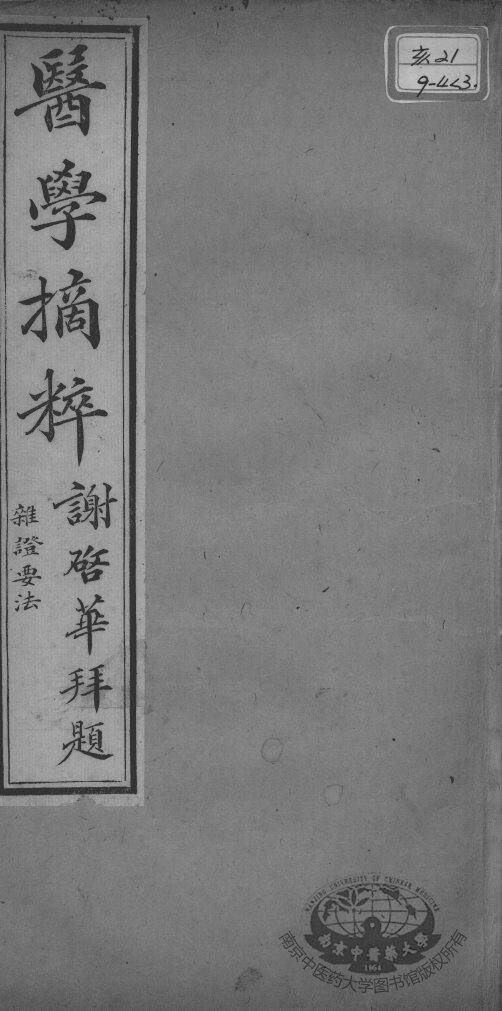 亥21
9-4<3.
醫學摘粹
謝啓華拜題
雜證要法
NANJING UNIVERSITY OF CHINESE MEDICINE
南京中醫藥大學
1954
南京中医药大学图书馆版权所有